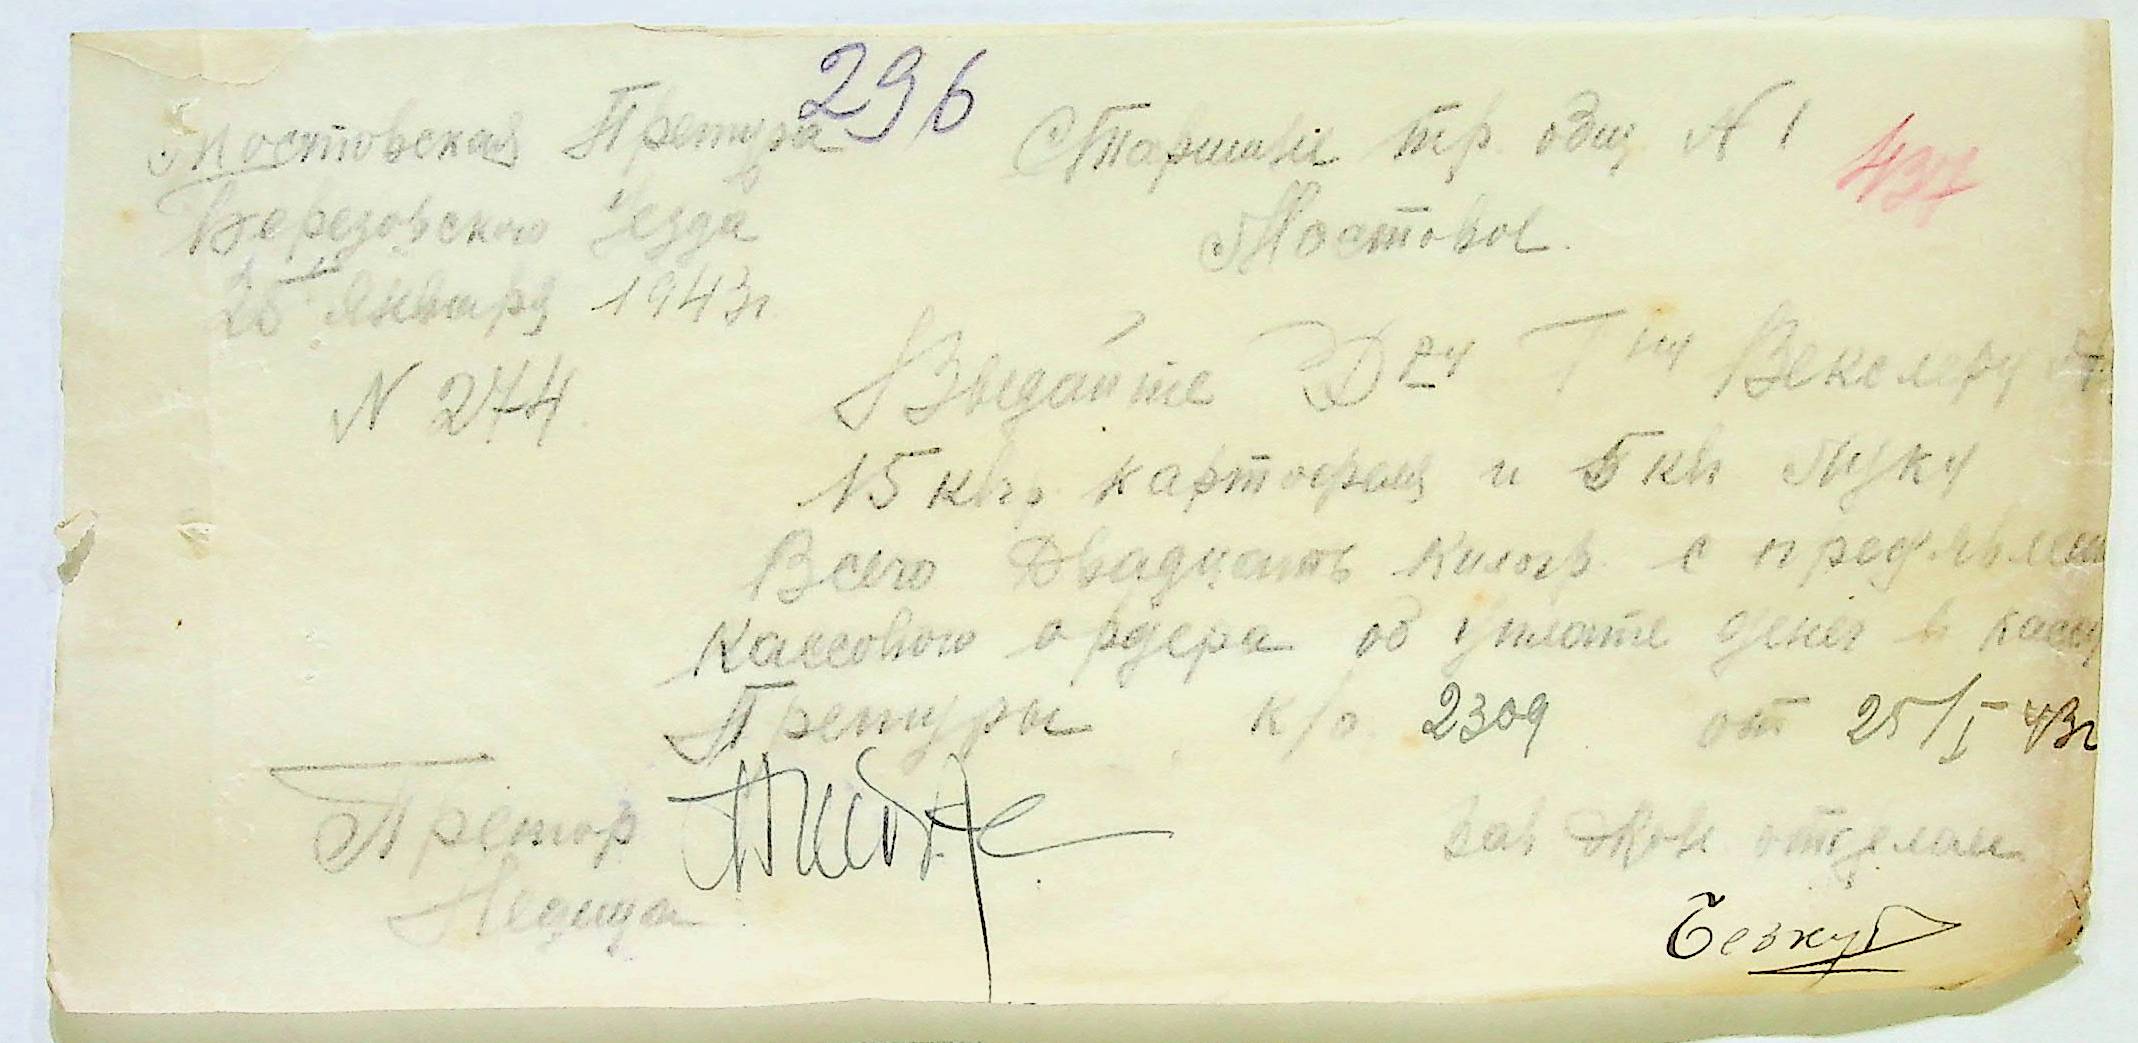 296
Мостовская Претура
Березовского Уезда
25 Января 1943 г.
N 274
Старшине тр. общ. N 1
Мостовое.
437
Выдайте Д-ру Г-ну Векслеру
15 клгр. картофеля и 5 кгл Луку
Всего Двадцать килогр. с предъявлен
Кассового ордера об уплате денег в кассу
Претуры к/о. 2309 от 25/I 43г
Претор
Недища
Зав Жив. отделам
Безкуб